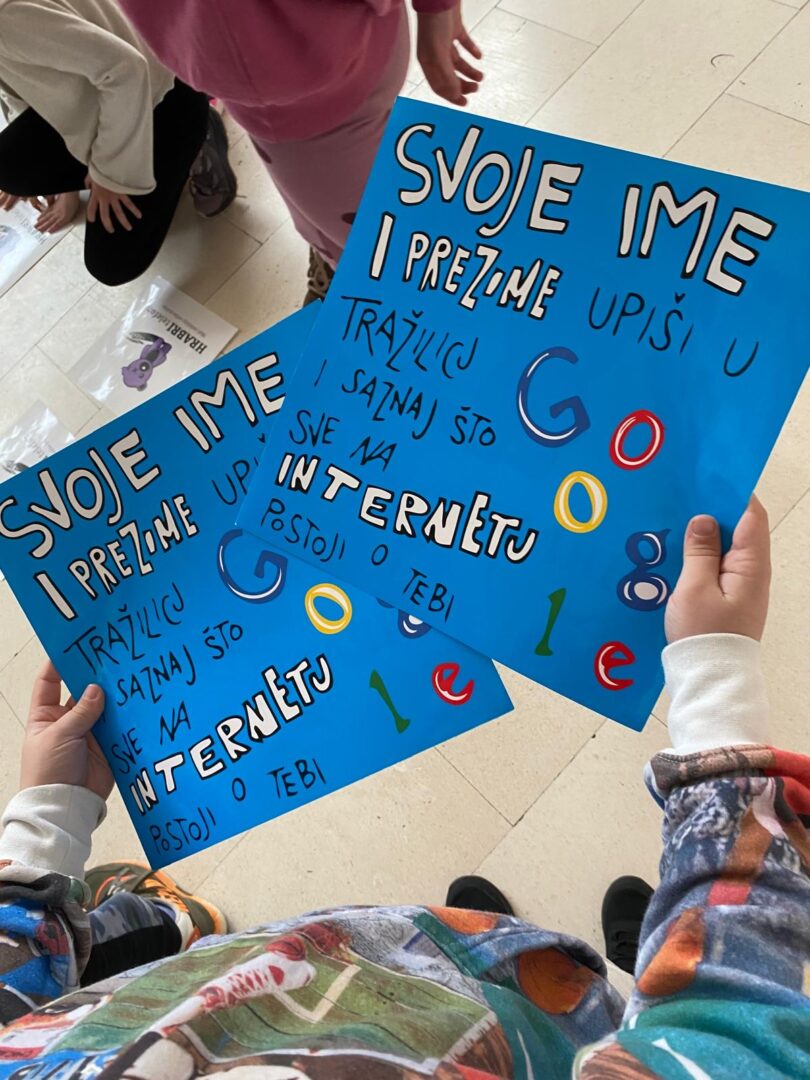 SVOJE IME
I PREZIME UPIŠI U
TRAŽILICU
I SAZNAJ ŠTO
SVE NA
INTERNETU
POSTOJI O TEBI
Google
SVOJE IME
I PREZIME UPI
TRAŽILICU
SAZNAJ ŠTO
SVE NA
INTERNETU
POSTOJI O TEBI
Go
le
HRABRI